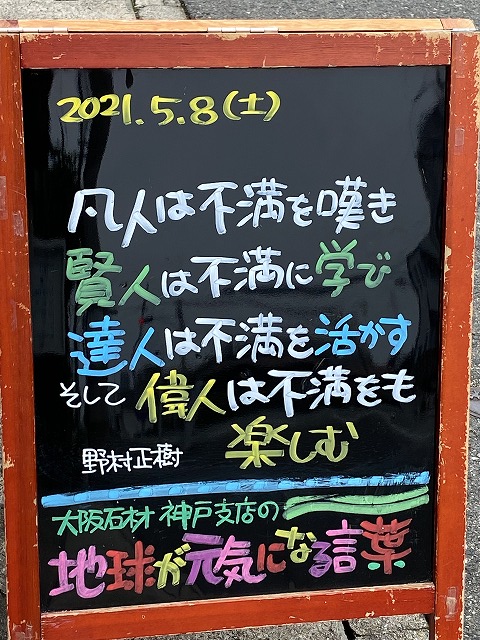 2021.5.8(土)
凡人は不満を嘆き
賢人は不満に学び
達人は不満を活かす
そして 偉人は不満をも
楽しむ
野村正樹
大阪石材 神戸支店の
地球が元気になる言葉